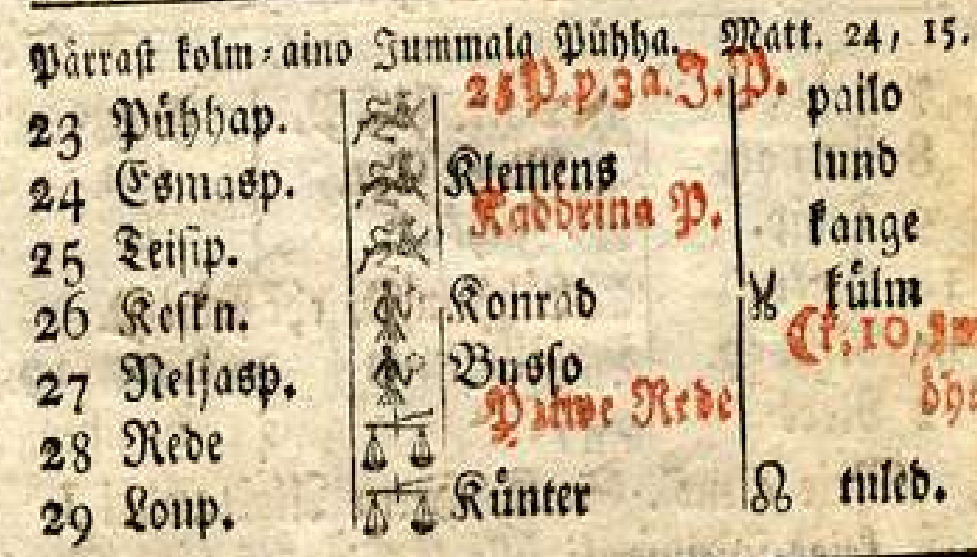 Pärrast kolm-aino Jummala Pühha. Matt. 24, 15.
23 Pühhap. 25 P. p. 3 a. J. P. pailo
24 Esmasp. Klemens lund
25 Teisip. Kaddrina P. kange
26 Keskn. Konrad külm
27 Neljasp. Busso 10,
28 Rede Rede
29 Loup. Künter tuled.